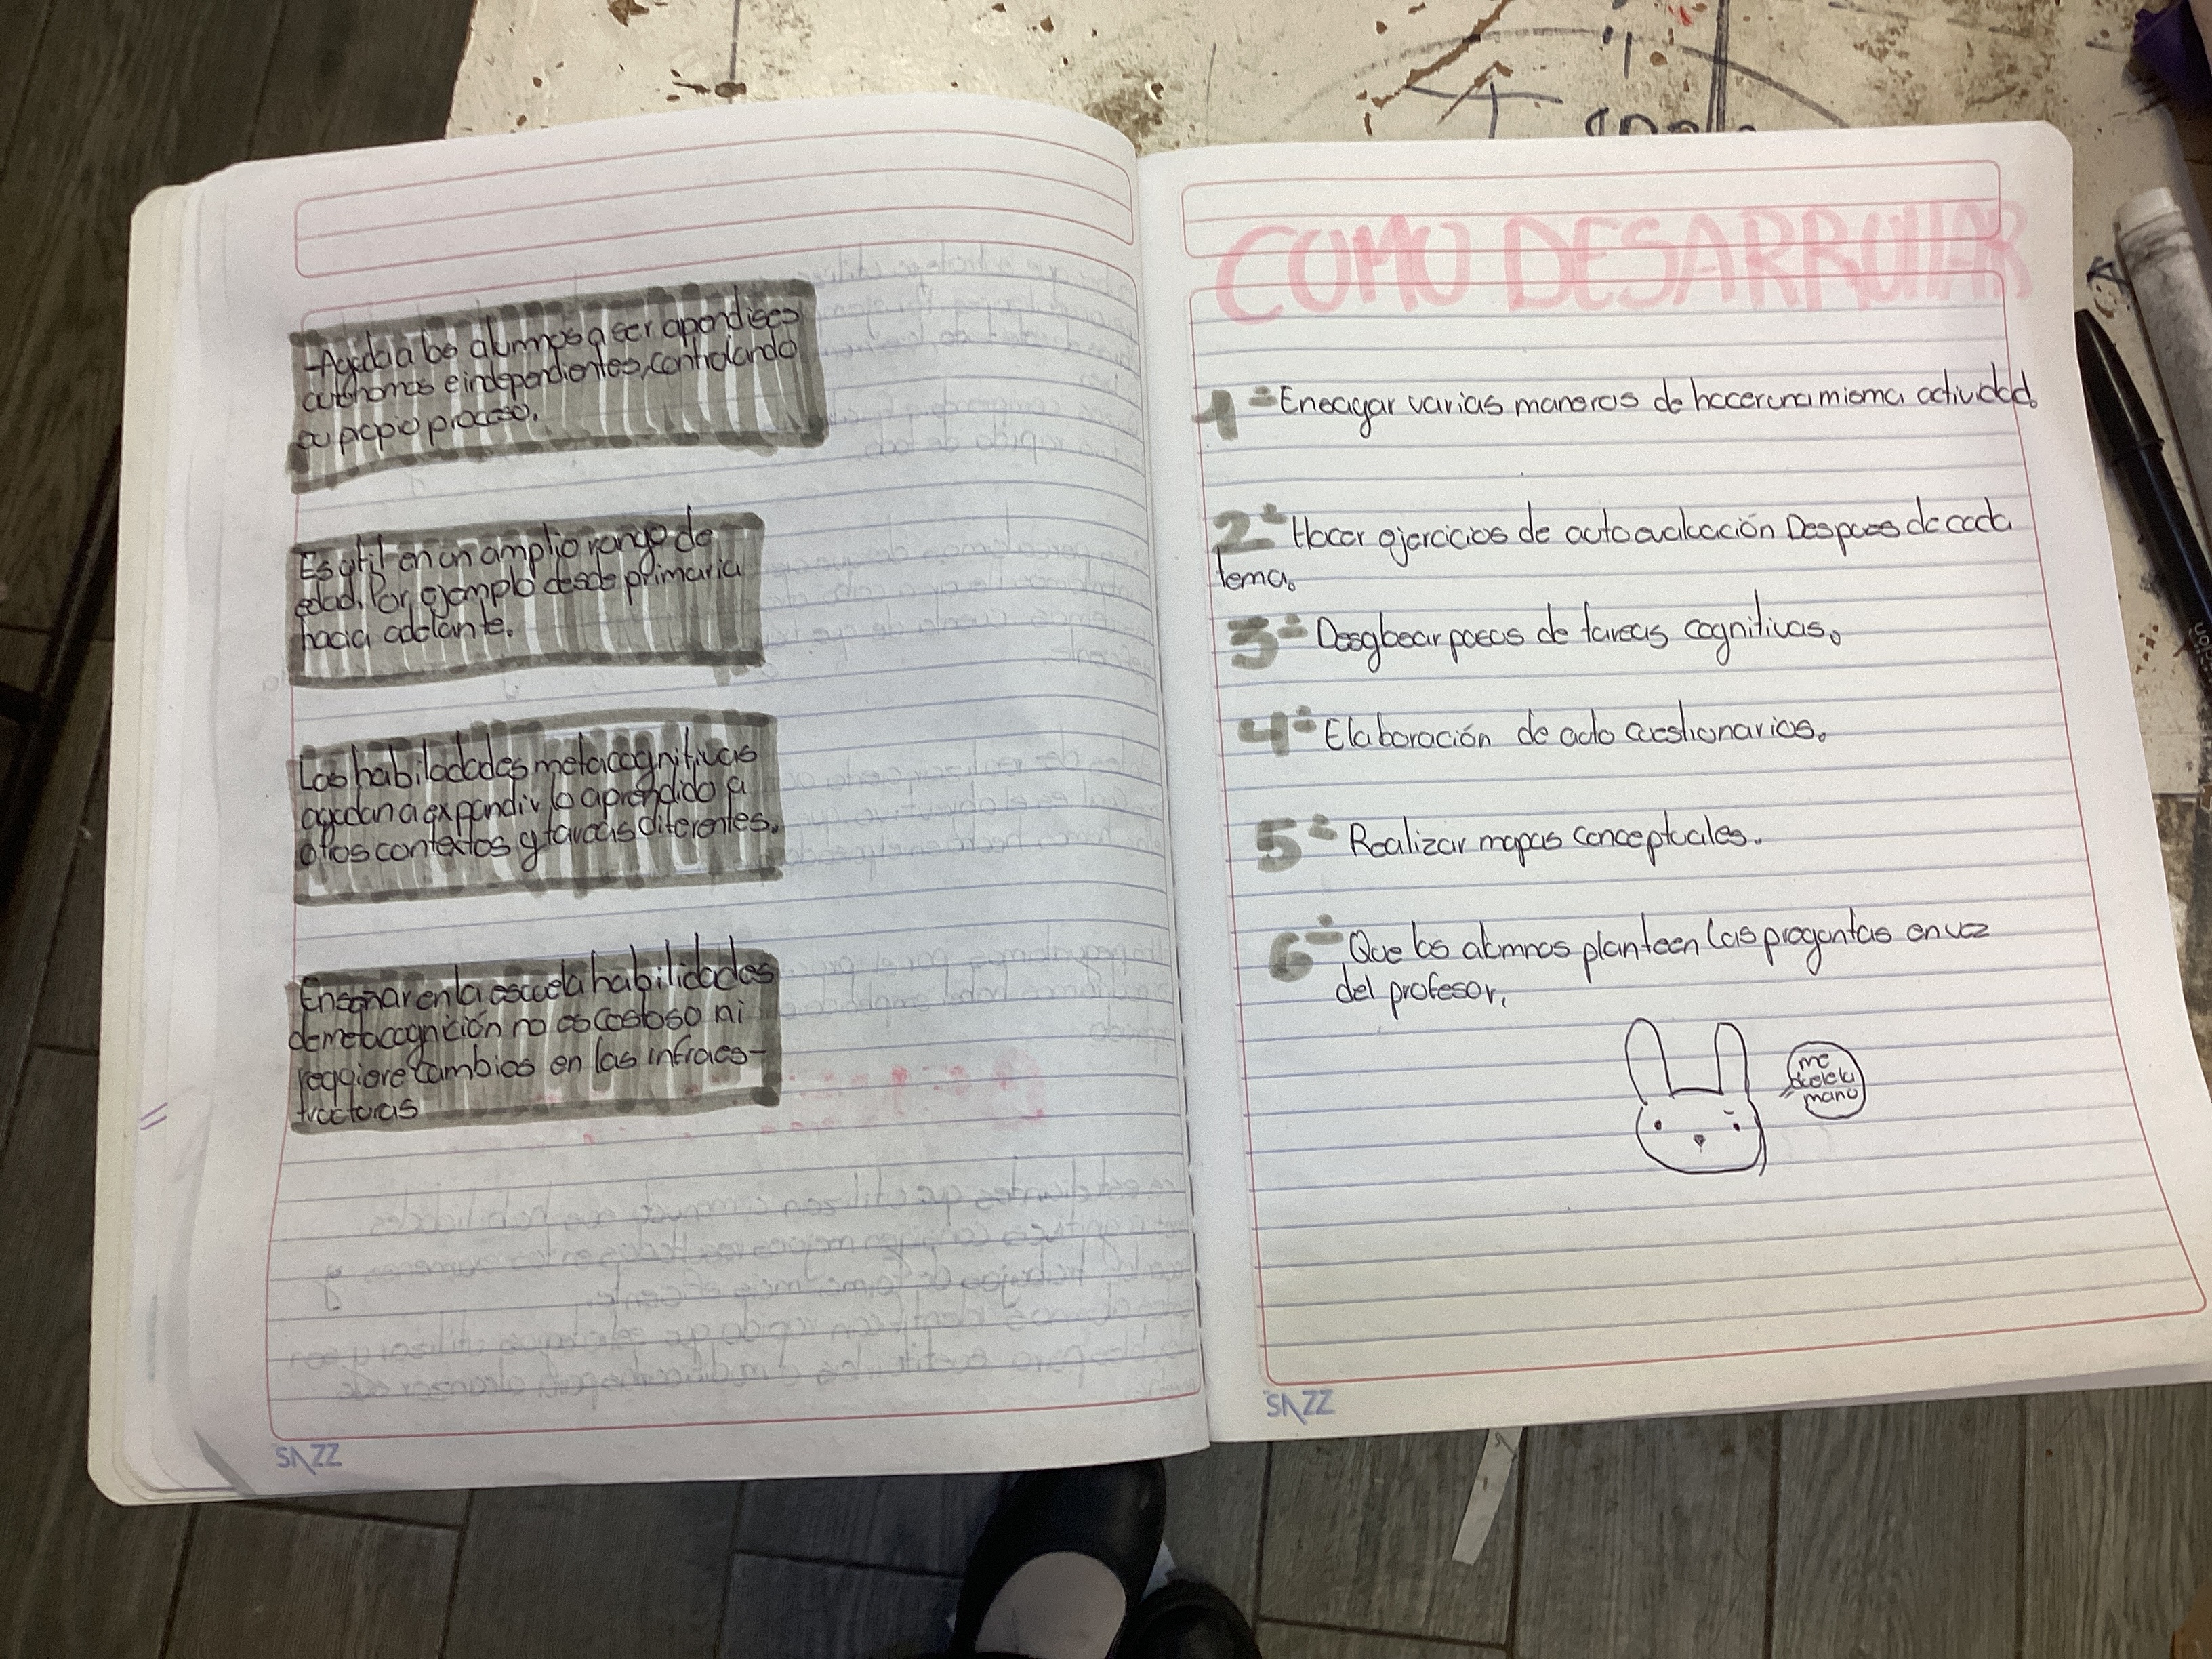 -Ayuda a los alumnos a ser aprendises
autónomos e independientes, controlando
su propio proceso.
Es útil en un amplio rango de
edad. Por ejemplo desde primaria
hacia adelante.
Las habiladades metacognitivas
ayudan a expandir lo aprendido a
otros contextos y tareas diferentes.
Enseñar en la escuela habilidades
de metacognición no es costoso ni
requiere cambios en las infraes-
tructuras
SAZZ
COMO DESARROLLAR
1- Ensayar varias maneras de hacer una misma actividad.
2- Hacer ejercicios de autoevaluación Despues de cada
tema.
3- Desglosar pasos de tareas cognitivas.
4- Elaboración de auto cuestionarios.
5- Realizar mapas conceptuales.
6- Que los alumnos planteen las preguntas en vez
del profesor.
me
duele la
mano
SAZZ